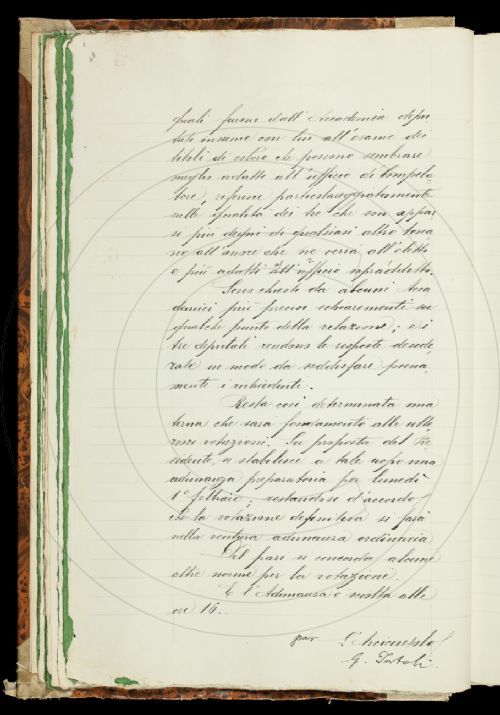 quali furono dall' Accademia depu
tati insieme con lui all'esame dei
titoli di coloro che possono sembrare
meglio adatti all'ufficio di Compila
tore, riferisce particolareggiatamente
sulle qualità dei tre che son appar
si più degni di qualsiasi altro tosca
no all'onore che ne verrà all'eletto
e più adatti all'ufficio sopraddetto.
Sono chiesti da alcuni Acca
demici più precisi schiarimenti su
qualche punto della relazione; e i
tre deputati rendono le risposte deside
rate in modo da soddisfare piena
mente i richiedenti.
Resta così determinata una
terna che sarà fondamento alle ulte
riori votazioni. Su proposta del Pre
sidente, si stabilisce a tale uopo una
adunanza preparatoria per lunedì
1° febbraio, restandosi d'accordo
che la votazione definitiva si farà
nella ventura adunanza ordinaria.
Del pari si concorda alcune
altre norme per la votazione.
E l'Adunanza è sciolta alle
ore 16.
per L'Arciconsolo
G.